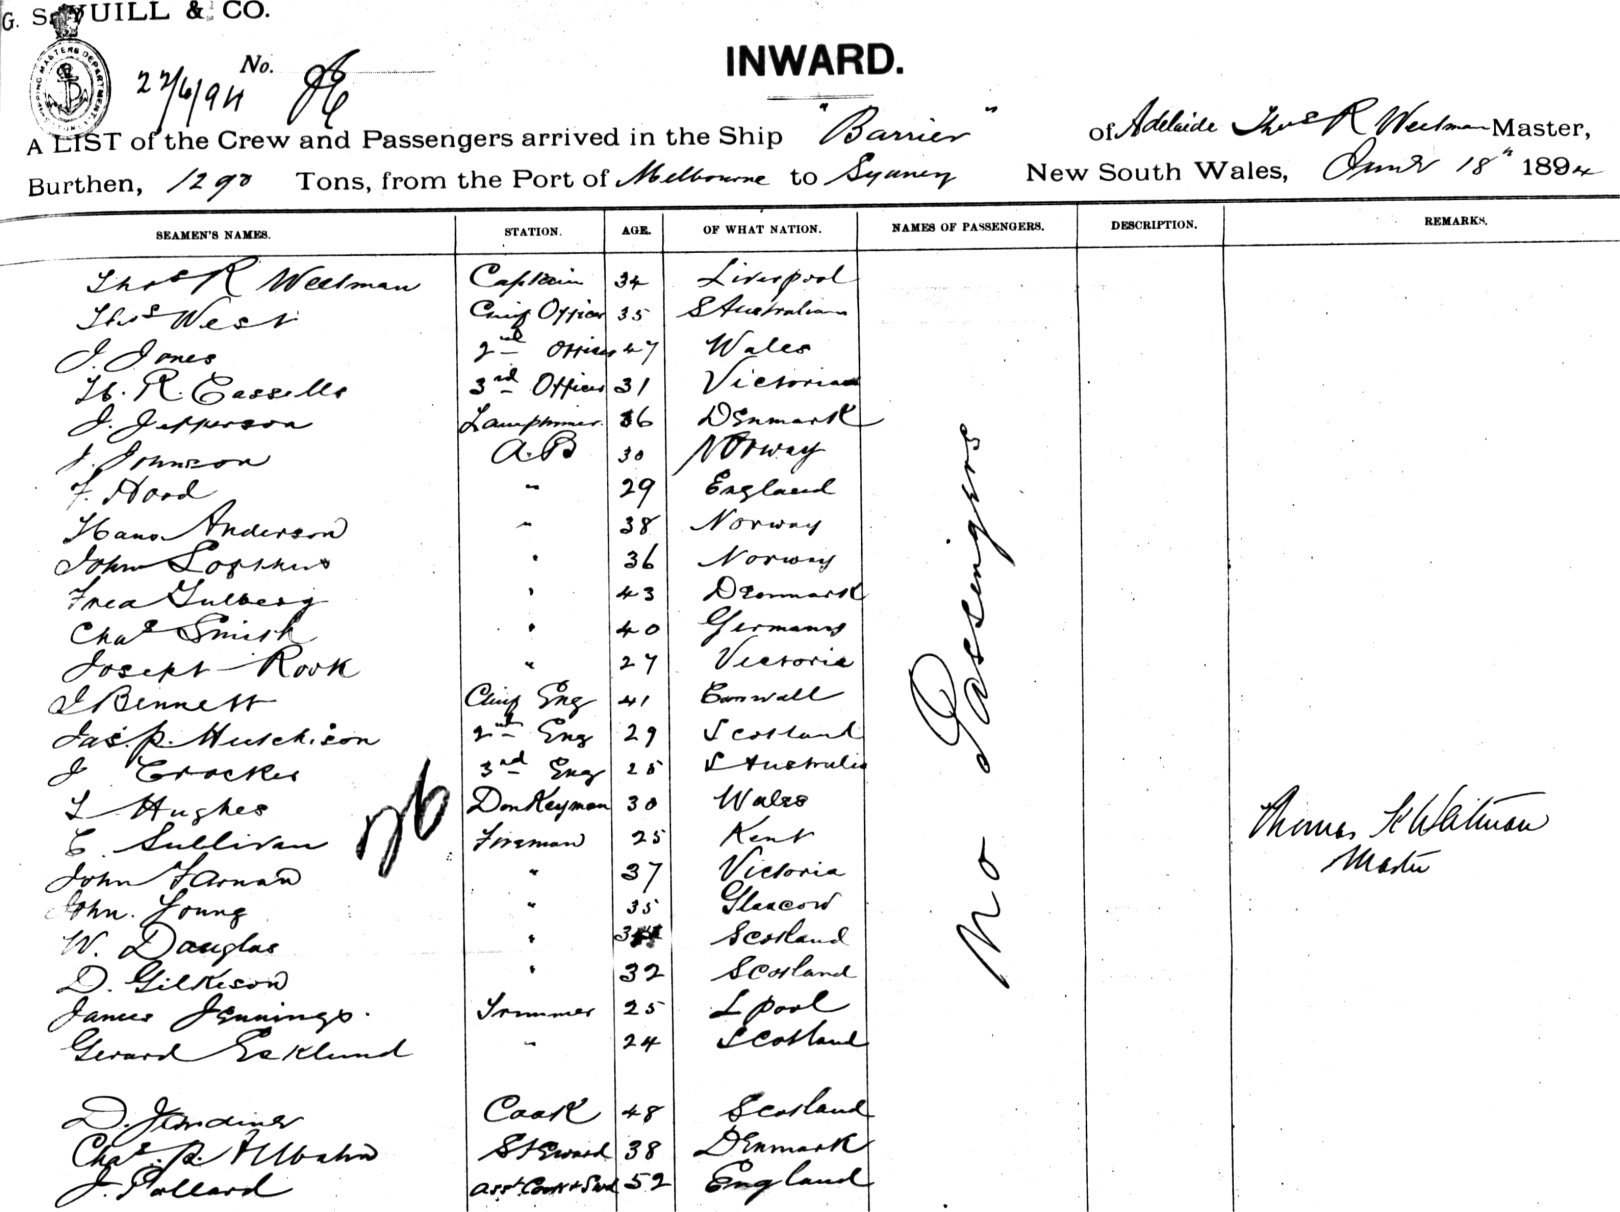 G. S. YUILL & CO.
SHIPPING MASTERS DEPARTMENT
No.
22/6/94
INWARD.
A LIST of the Crew and Passengers arrived in the Ship "Barrier" of Adelaide Thos R Weetman Master,
Burthen, 1290 Tons, from the Port of Melbourne to Sydney New South Wales, June 18" 1894
SEAMEN'S NAMES. STATION. AGE. OF WHAT NATION. NAMES OF PASSENGERS. DESCRIPTION. REMARKS.
Thos R Weetman Captain 34 Liverpool
Thos West Chief Officer 35 S Australian
J. Jones 2nd Officer 47 Wales
H. R. Cassells 3rd Officer 31 Victorian
J. Jefferson Lamptrimmer 36 Denmark
J. Johnson A.B 30 Norway
F. Hood " 29 England
Hans Anderson " 38 Norway
John " 36 Norway
Fred Gulberg " 43 Denmark
Chas Smith " 40 Germany
Joseph Rook " 27 Victoria
J Bennett Chief Eng 41 Cornwall
Jas. P. Hutchison 2nd Eng 29 Scotland
J Crocker 3rd Eng 25 S Australia
T Hughes Donkeyman 30 Wales
C. Sullivan Fireman 25 Kent
John Farnan " 37 Victoria
John Young " 35 Glascow
W. Douglas " Scotland
D. Gilkison " 32 Scotland
James Jennings. Trimmer 25 L pool
Gerard Esklund " 24 Scotland
D. Cook 48 Scotland
Chas. P. Steward 38 Denmark
J. Pollard asst. Cook & Stwd 52 England
26
No Passengers
Thomas R Weetman
Master